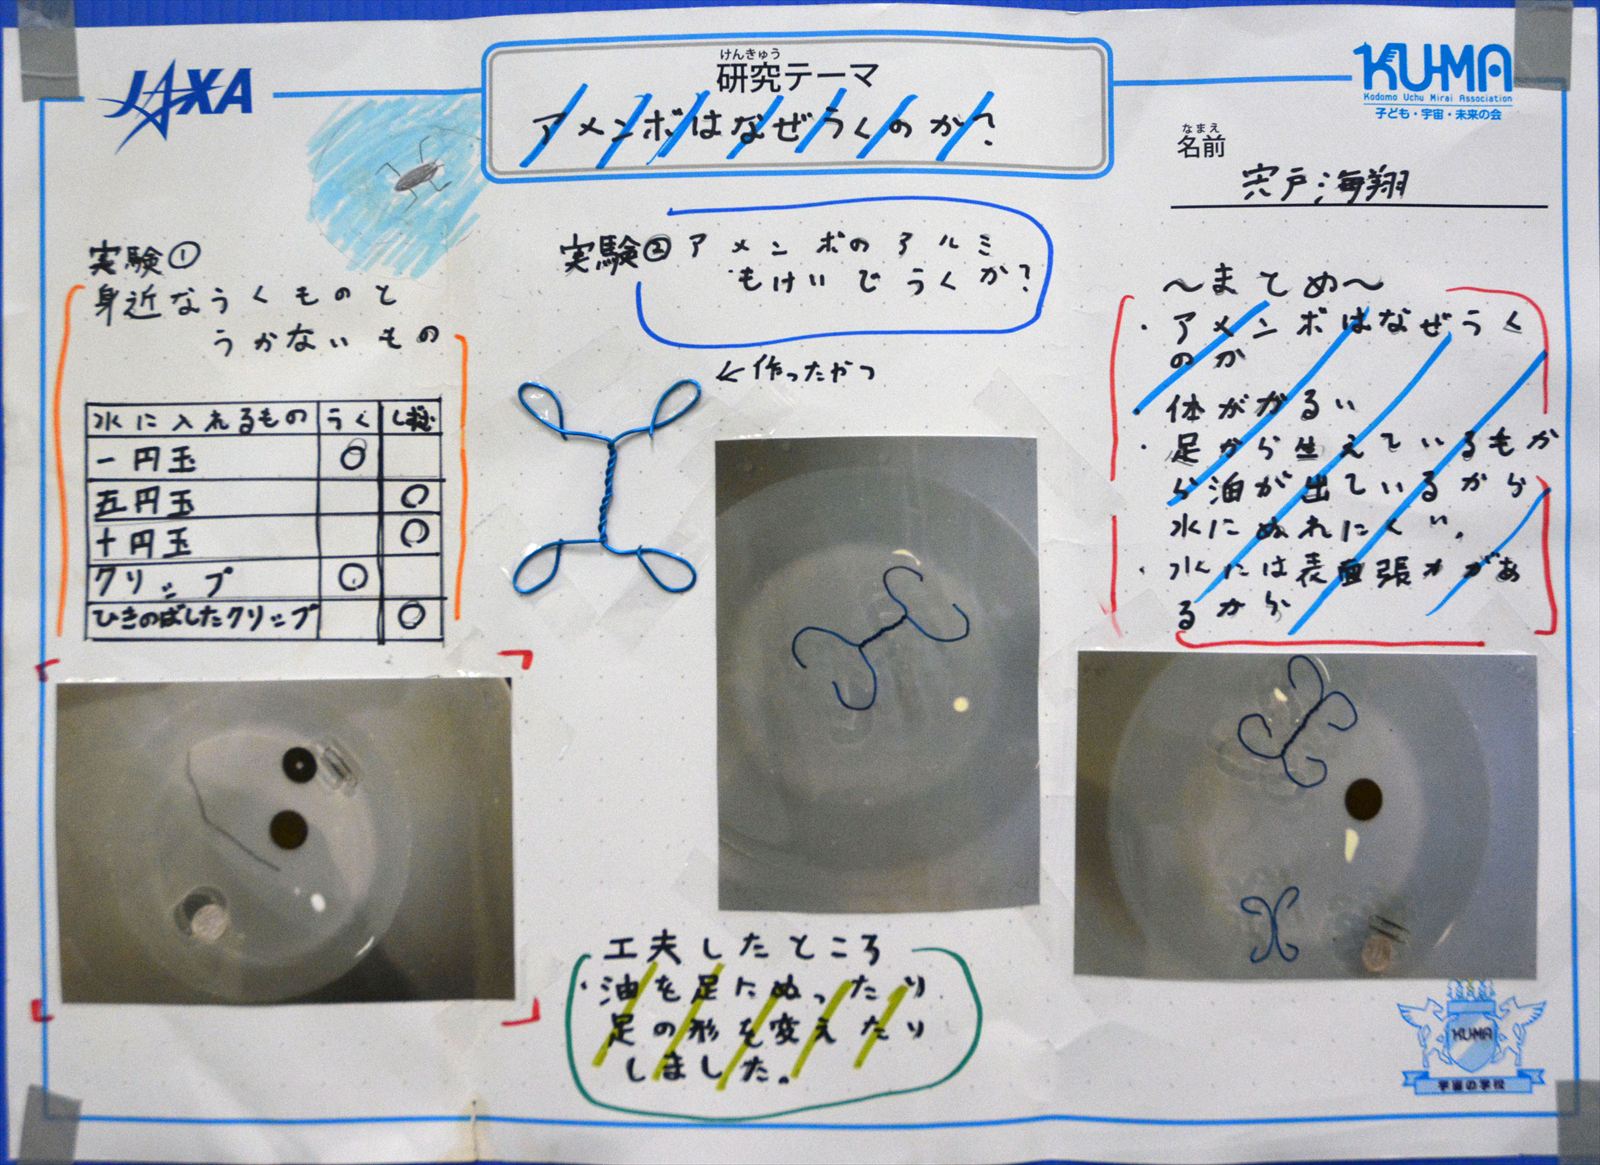 JAXA
けんきゅう
研究テーマ
アメンボはなぜうくのか?
KU-MA
Kodomo Uchu Mirai Association
子ども・宇宙・未来の会
なまえ
名前
宍戸海翔
実験①
身近なうくものと
うかないもの
水に入れるもの うく しずむ
一円玉 ○
五円玉 ○
十円玉 ○
クリップ ○
ひきのばしたクリップ ○
実験② アメンボのアルミ
もけいでうくか?
←作ったやつ
工夫したところ
・油を足にぬったり
足の形を変えたり
しました。
〜まとめ〜
・アメンボはなぜうく
のか
・体がかるい
・足から生えているもか
ら油が出ているから
水にぬれにくい。
・水には表面張力があ
るから
KUMA
宇宙の学校